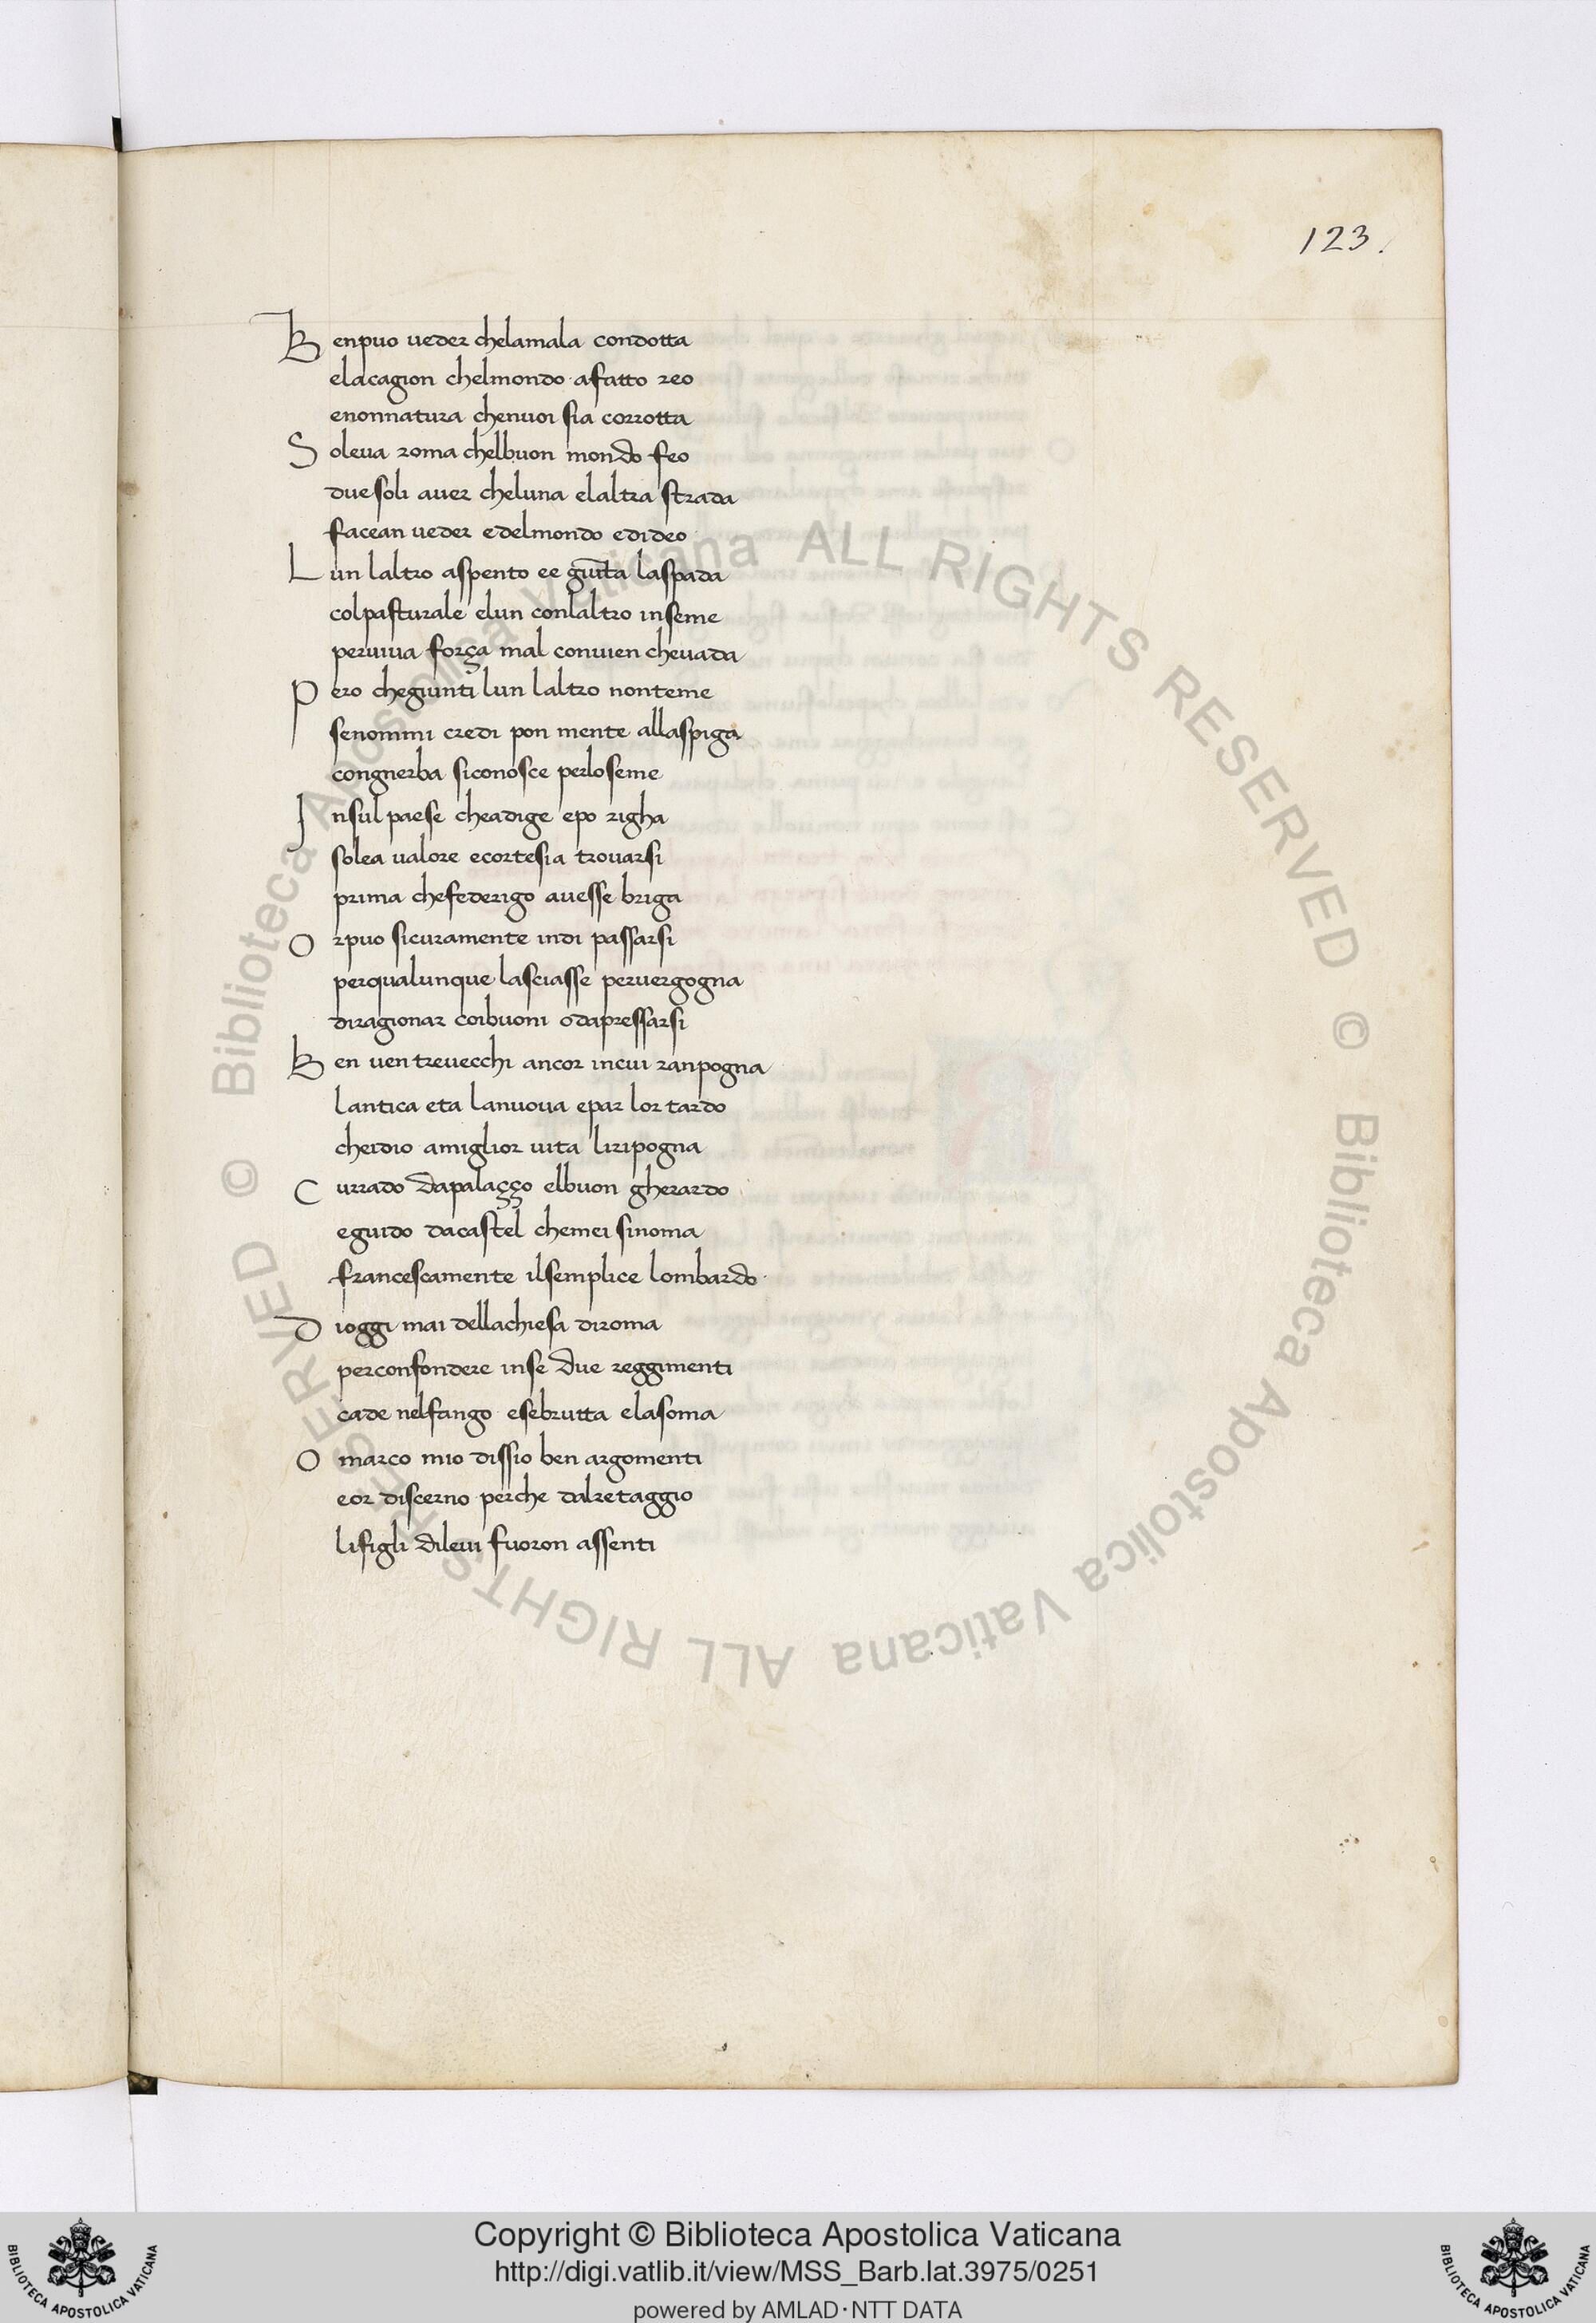 123.
Benpuo veder chelamala condotta
elacagion chelmondo afatto reo
enonnatura chenvoi sia corrotta
Soleva roma chelbuon mondo feo
duesoli aver cheluna elaltra strada
facean veder edelmondo edideo
Lun laltro aspento ee giu͞ta laspada
colpasturale elun conlaltro inseme
perviva força mal convien chevada
Pero chegiunti lun laltro nonteme
senommi credi pon mente allaspiga
congnerba siconosce perloseme
Insul paese cheadige epo righa
solea valore ecortesia trovarsi
prima chefederigo avesse briga
Orpuo sicuramente indi passarsi
perqualunque lasciasse pervergogna
diragionar coibuoni odapressarsi
Ben ven trevecchi ancor incui ranpogna
lantica eta lanuova epar lor tardo
cheidio amiglior vita liripogna
Currado dapalaçço elbuon gherardo
eguido dacastel chemei sinoma
francescamente ilsemplice lombardo
Dioggi mai dellachiesa diroma
perconfondere inse due reggimenti
cade nelfango esebrutta elasoma
O marco mio dissio ben argomenti
eor discerno perche dalretaggio
lifigli dilevi fuoron assenti
© Biblioteca Apostolica Vaticana ALL RIGHTS RESERVED © Biblioteca Apostolica Vaticana ALL RIGHTS RESERVED
Copyright © Biblioteca Apostolica Vaticana
http://digi.vatlib.it/view/MSS_Barb.lat.3975/0251
powered by AMLAD·NTT DATA
BIBLIOTECA APOSTOLICA VATICANA
BIBLIOTECA APOSTOLICA VATICANA